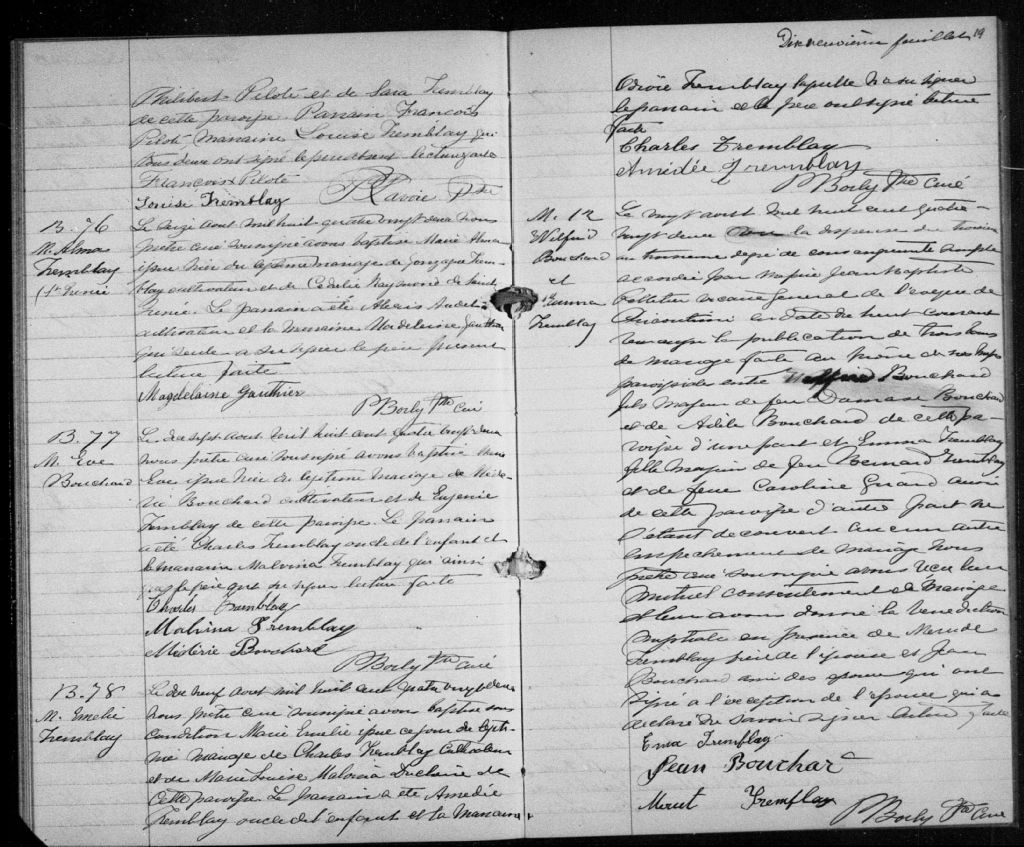 Philibert Piloté et de Sara Tremblay
de cette paroisse. Parrain François
Piloté Marraine Louise Tremblay qui
tous deux ont signé le présent lecture faite
François Piloté
Louise Tremblay
B. 76
M. Alma
Tremblay
(Ste Irenée
Le seize aout mil huit cent quatre vingt deux nous
prêtre curé soussigné avons baptisé Marie Alma
née hier du légitime mariage de Gonzague Trem-
blay cultivateur et de Raymond de Saint
Irenée. Le parrain a été Alexis
cultivateur et la marraine Madeleine Gauthier
qui seule a su signer le père présent
lecture faite
Magdelaine Gauthier
P Boily Ptre Curé
B. 77
M. Eve
Bouchard
Le dix sept aout mil huit cent quatre vingt deux
nous prêtre curé soussigné avons baptisé Marie
Eve née hier du légitime mariage de
Bouchard cultivateur et de Eugenie
Tremblay de cette paroisse. Le parrain
a été Charles Tremblay oncle de l'enfant et
la marraine Malvina Tremblay qui ainsi
que le père ont su signer lecture faite
Charles Tremblay
Malvina Tremblay
Bouchard
P Boily Ptre Curé
B. 78
M. Emelie
Tremblay
Le dix neuf aout mil huit cent quatre vingt deux
nous prêtre curé soussigné avons baptisé sous
condition Marie Emelie née ce jour du légiti-
me mariage de Charles Tremblay Cultivateur
et de Marie Louise Malvina de
cette paroisse. Le parrain a été Amedée
Tremblay oncle de l'enfant et la Marraine
Dixneuvième feuillet 19
Tremblay laquelle n'a su signer
le parrain et le père ont signé lecture
faite
Charles Tremblay
Amédée Tremblay
P Boily Ptre Curé
M. 12
Wilfrid
Bouchard
et
Emma
Tremblay
Le vingt aout mil huit cent quatre-
vingt deux vu la dispense du troisième
au troisième degré de consanguinité
accordée par Messire Jean Baptiste
Pelletier vicaire Général de l'évêque de
Chicoutimi en date du huit courant
vu aussi la publication de trois bans
de mariage faite au prône de nos messes
paroissiales entre Wilfrid Bouchard
fils majeur de feu Damase Bouchard
et de Adèle Bouchard de cette pa-
roisse d'une part et Emma Tremblay
fille majeure de feu Bernard Tremblay
et de feue Caroline Girard aussi
de cette paroisse d'autre part ne
s'étant découvert aucun autre
empêchement de mariage nous
prêtre curé soussigné avons reçu leur
mutuel consentement de mariage
et leur avons donné la bénédiction
nuptiale en présence de
Tremblay frère de l'épouse et Jean
Bouchard ami des époux qui ont
signé à l'exception de l'époux qui a
déclaré ne savoir signer lecture faite
Ema Tremblay
Jean Bouchar
Tremblay
P Boily Ptre Curé